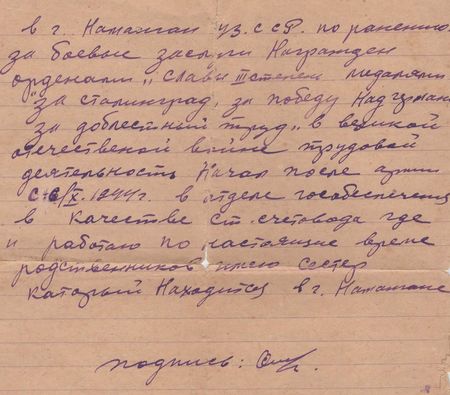 в г. Наманган Уз.ССР. по ранению
за боевые заслуги Награжден
орденами „Славы III степени медалями
"за Сталинград, за победу Над Герман
за доблестный труд„ в великой
отечественой войне трудовой
деятельность Начал после армии
с 6/X. 1944г. в отделе гособеспечения
в качестве Ст. счетовода где
и работаю по настоящие време
родственников имею сестер
каторый Находится в г. Намангане
подпись: